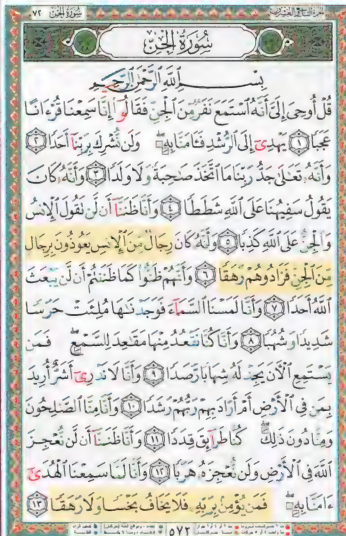 سُورَةُ الجِنّ
سُورَةُ الْجِنِّ
بِسْمِ اللَّهِ الرَّحْمَٰنِ الرَّحِيمِ
قُلْ أُوحِيَ إِلَيَّ أَنَّهُ اسْتَمَعَ نَفَرٌ مِنَ الْجِنِّ فَقَالُوا إِنَّا سَمِعْنَا قُرْءَانًا
عَجَبًا ١ يَهْدِي إِلَى الرُّشْدِ فَـَٔامَنَّا بِهِ وَلَنْ نُشْرِكَ بِرَبِّنَا أَحَدًا ٢
وَأَنَّهُ تَعَٰلَىٰ جَدُّ رَبِّنَا مَا اتَّخَذَ صَٰحِبَةً وَلَا وَلَدًا ٣ وَأَنَّهُ كَانَ
يَقُولُ سَفِيهُنَا عَلَى اللَّهِ شَطَطًا ٤ وَأَنَّا ظَنَنَّا أَنْ لَنْ تَقُولَ الْإِنْسُ
وَالْجِنُّ عَلَى اللَّهِ كَذِبًا ٥ وَأَنَّهُ كَانَ رِجَالٌ مِنَ الْإِنْسِ يَعُوذُونَ بِرِجَالٍ
مِنَ الْجِنِّ فَزَادُوهُمْ رَهَقًا ٦ وَأَنَّهُمْ ظَنُّوا كَمَا ظَنَنْتُمْ أَنْ لَنْ يَبْعَثَ
اللَّهُ أَحَدًا ٧ وَأَنَّا لَمَسْنَا السَّمَاءَ فَوَجَدْنَٰهَا مُلِئَتْ حَرَسًا
شَدِيدًا وَشُهُبًا ٨ وَأَنَّا كُنَّا نَقْعُدُ مِنْهَا مَقَٰعِدَ لِلسَّمْعِ فَمَنْ
يَسْتَمِعِ الْآنَ يَجِدْ لَهُ شِهَابًا رَصَدًا ٩ وَأَنَّا لَا نَدْرِي أَشَرٌّ أُرِيدَ
بِمَنْ فِي الْأَرْضِ أَمْ أَرَادَ بِهِمْ رَبُّهُمْ رَشَدًا ١٠ وَأَنَّا مِنَّا الصَّٰلِحُونَ
وَمِنَّا دُونَ ذَٰلِكَ كُنَّا طَرَائِقَ قِدَدًا ١١ وَأَنَّا ظَنَنَّا أَنْ لَنْ نُعْجِزَ
اللَّهَ فِي الْأَرْضِ وَلَنْ نُعْجِزَهُ هَرَبًا ١٢ وَأَنَّا لَمَّا سَمِعْنَا الْهُدَىٰ
ءَامَنَّا بِهِ فَمَنْ يُؤْمِنْ بِرَبِّهِ فَلَا يَخَافُ بَخْسًا وَلَا رَهَقًا ١٣
٥٧٢